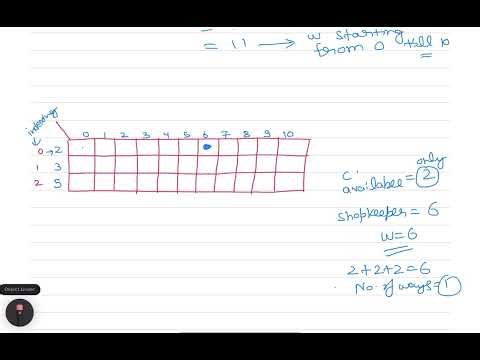 = 11 → w starting
from 0 till 10
indexing
0 1 2 3 4 5 6 7 8 9 10
0 → 2
1 3
2 5
only
C.
available = 2
shopkeeper = 6
w = 6
2+2+2=6
No. of ways = 1